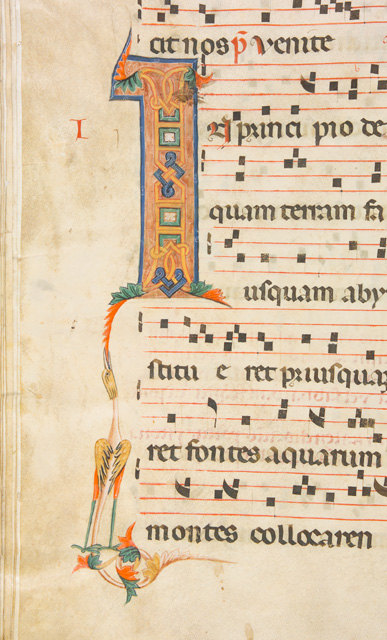 cit nos p̃ venite
I
IN princi pio de
quam terram fa
usquam aby
stitu e ret priusquaz
ret fontes aquarum
montes collocaren